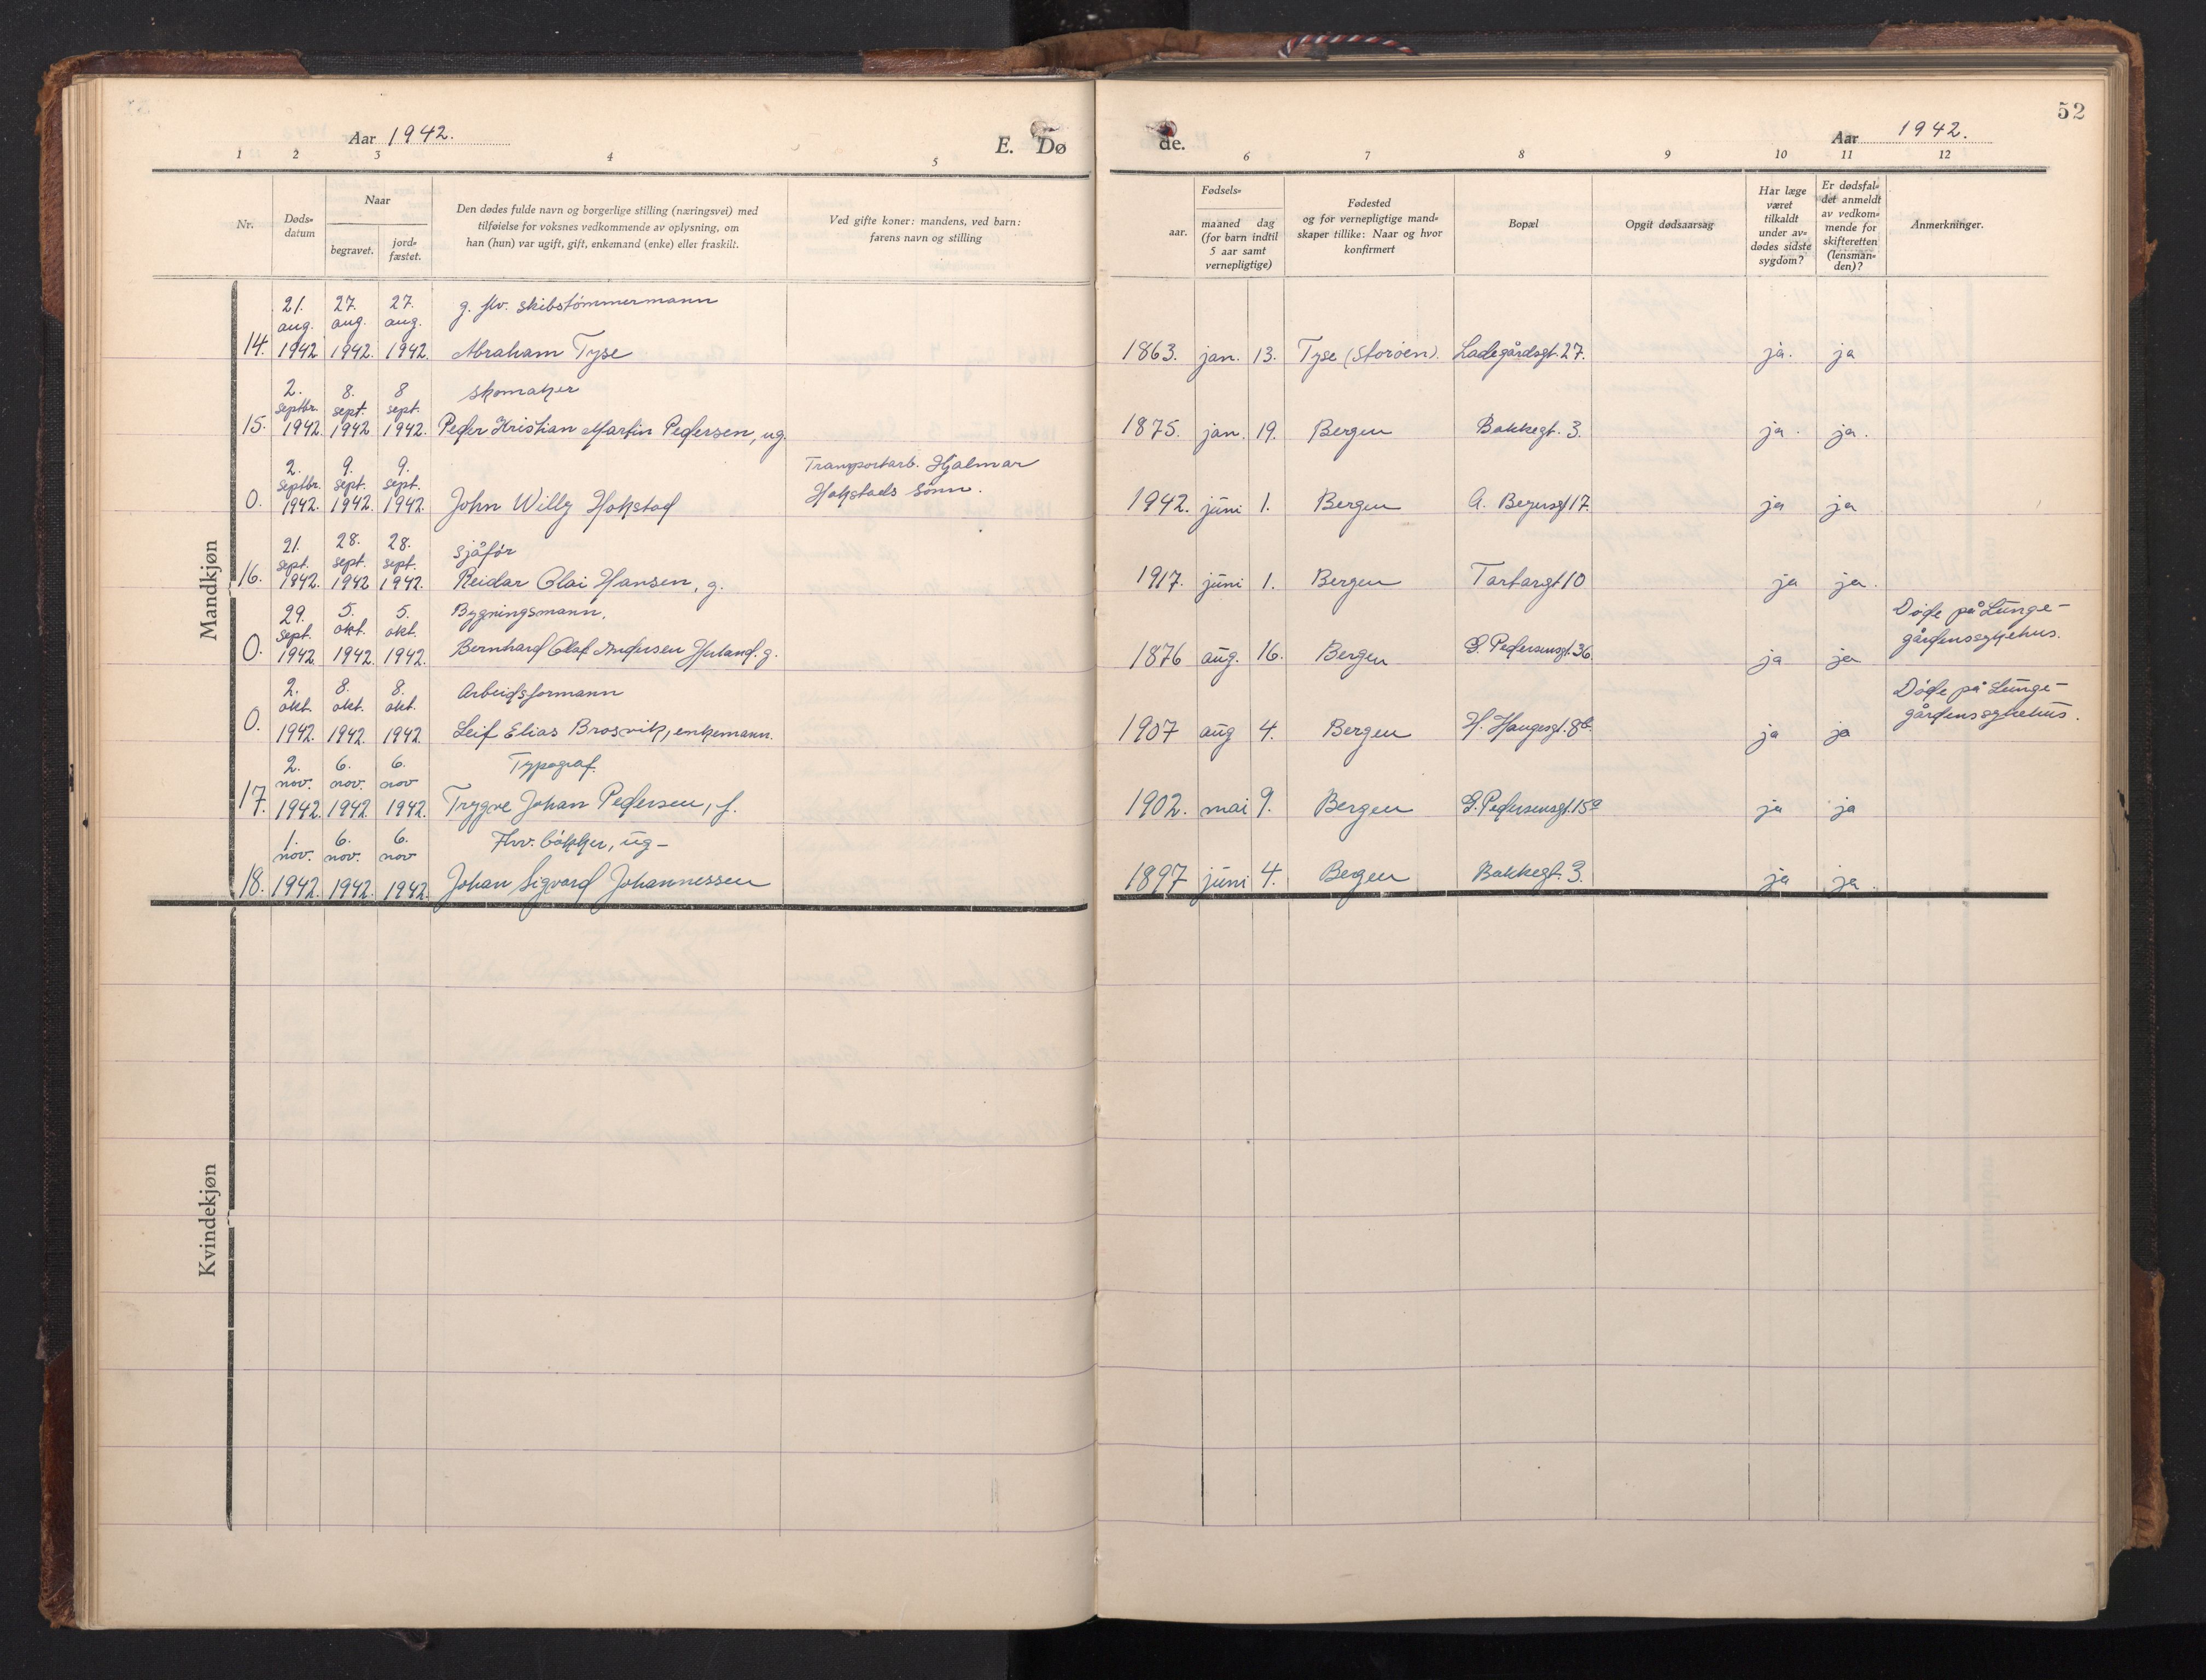 52
Aar 1942.
E. Dø
de.
Aar 1942.
1 2 3 4 5
6 7 8 9 10 11 12
Nr.
Døds-
datum
Naar
begravet.
jord-
fæstet.
Den dødes fulde navn og borgerlige stilling (næringsvei) med
tilføielse for voksnes vedkommende av oplysning, om
han (hun) var ugift, gift, enkemand (enke) eller fraskilt.
Ved gifte koner: mandens, ved barn:
farens navn og stilling
Fødsels-
aar.
maaned dag
(for barn indtil
5 aar samt
vernepligtige)
Fødested
og for vernepligtige mand-
skaper tillike: Naar og hvor
konfirmert
Bopæl
Opgit dødsaarsag
Har læge
været
tilkaldt
under av-
dødes sidste
sygdom?
Er dødsfal-
det anmeldt
av vedkom-
mende for
skifteretten
(lensman-
den)?
Anmerkninger.
Mandkjøn
21. 27. 27. g. fhv. skibstømmermann
aug. aug. aug.
14. 1942 1942. 1942. Abraham Tyse 1863. jan. 13. Tyse (Storøen). Ladegårdsgt. 27. ja. ja
2. 8. 8 skomaker
septbr. sept. sept.
15. 1942. 1942 1942. Peder Kristian Martin Pedersen, ug. 1875. jan. 19. Bergen Bakkegt. 3. ja. ja.
2. 9. 9. Transportarb. Hjalmar
septbr. sept. sept. Hokstads sønn.
0. 1942. 1942. 1942. John Willy Hokstad 1942. juni 1. Bergen A. Beyersgt 17. ja ja
21. 28. 28. sjåfør
sept. sept. sept.
16. 1942. 1942 1942. Reidar Olai Hansen, g. 1917. juni 1. Bergen Tartargt 10 ja ja.
29. 5. 5. Bygningsmann. Døde på Lunge-
sept. okt. okt. gårdenssykehus.
0. 1942 1942. 1942. Bernhard Olaf Andersen g. 1876 aug. 16. Bergen G. Pedersensgt. 36. ja ja
2. 8. 8. Arbeidsformann Døde på Lunge-
okt. okt. okt. gårdenssykehus.
0. 1942. 1942. 1942 Leif Elias Brosvik, enkemann. 1907 aug 4. Bergen H. Haugesgt. 8b. ja ja
2. 6. 6. Typograf.
nov. nov. nov
17. 1942. 1942. 1942. Trygve Johan Pedersen, f. 1902. mai 9. Bergen G. Pedersensgt. 15a ja ja
1. 6. 6. Fhv. bøkker, ug-
nov. nov. nov
18. 1942. 1942. 1942. Johan Sigvard Johannessen 1897 juni 4. Bergen Bakkegt. 3. ja ja.
Kvindekjøn